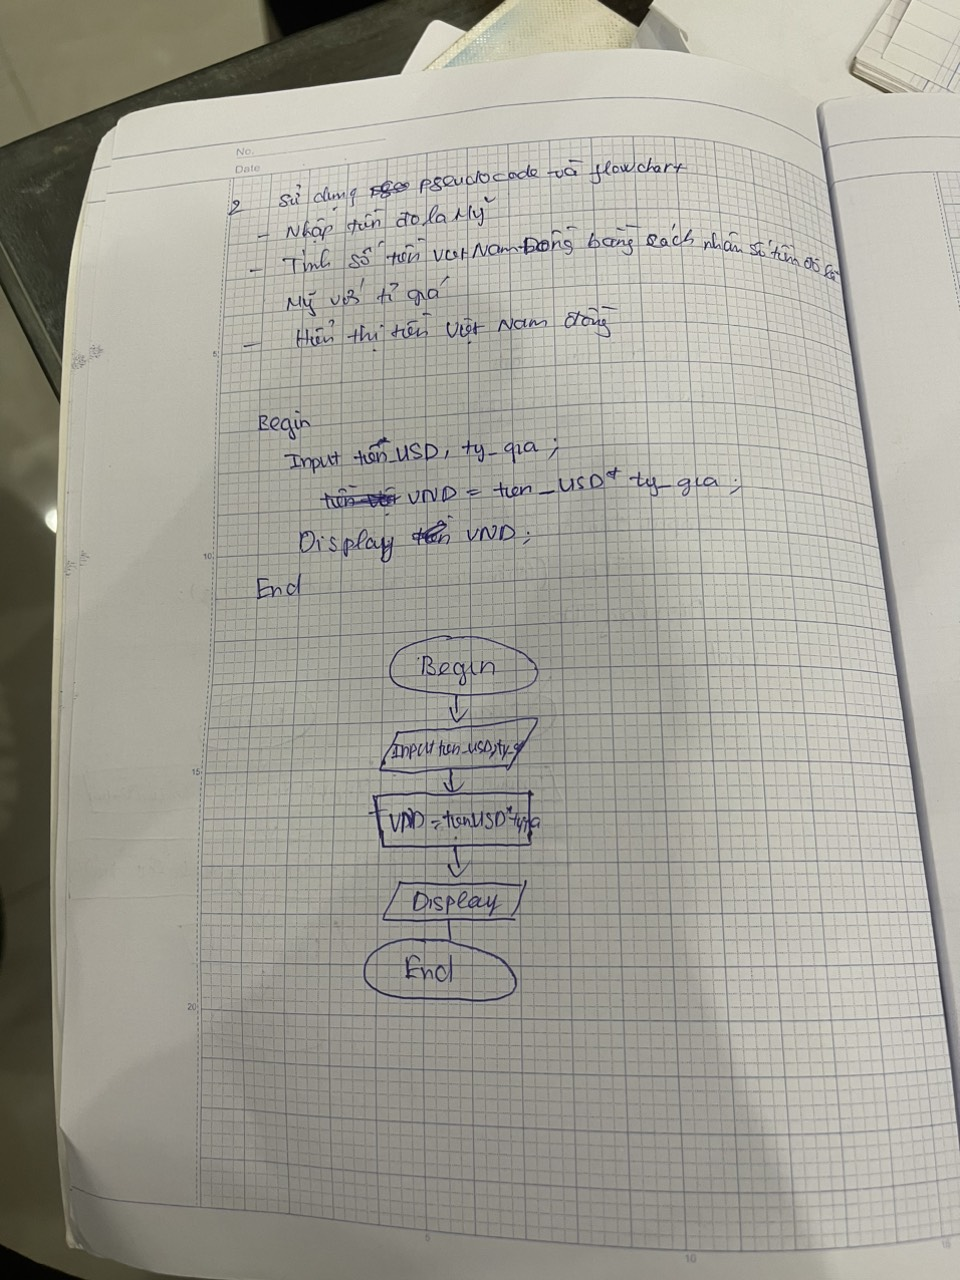 No.
Date
2 Sử dụng pseudocode và flowchart
- Nhập tiền đô la Mỹ
- Tính số tiền Việt Nam Đồng bằng cách nhân số tiền đô la
Mỹ với tỉ giá
- Hiển thị tiền Việt Nam đồng
5
Begin
Input tiền_USD, ty_gia ;
VND = tien_USD * ty_gia ;
10
Display VND ;
End
Begin
Input tien_USD, ty_g
15
VND = tienUSD * tygia
Display
End
20
5
10
15